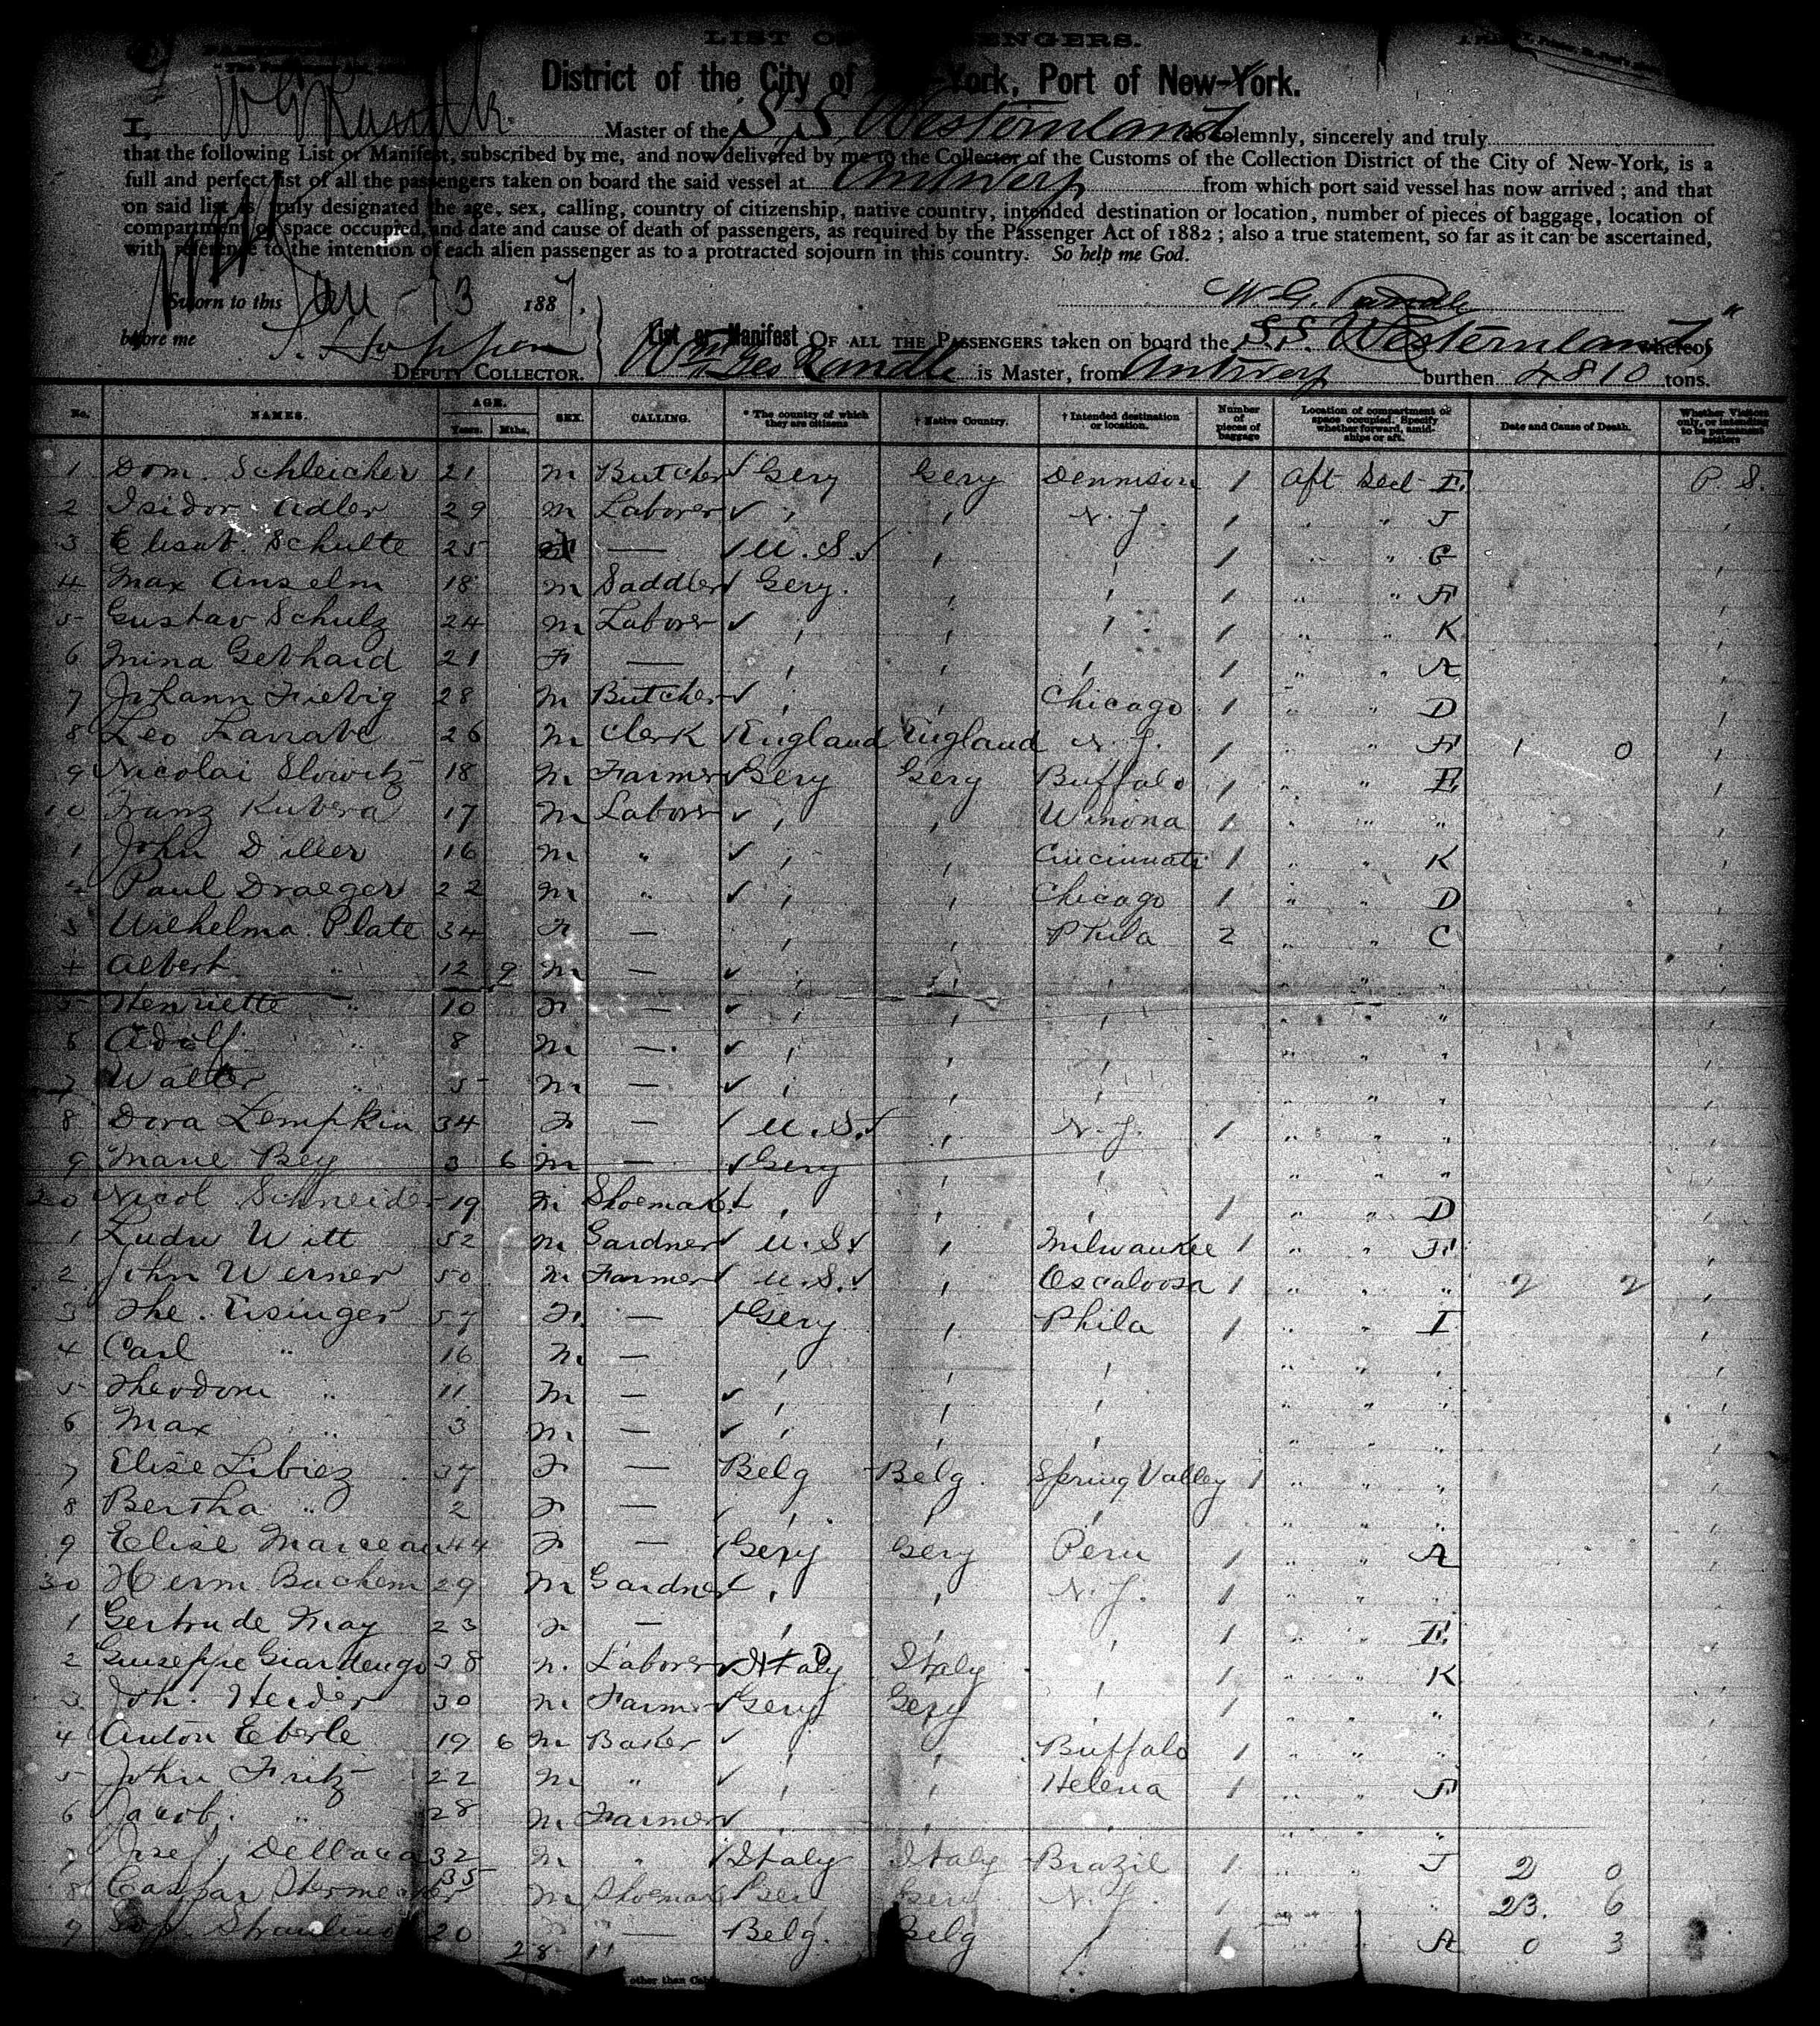 LIST OF PASSENGERS.
District of the City of New-York, Port of New-York.
I, W G Randle Master of the S.S. Westernland do solemnly, sincerely and truly
that the following List or Manifest, subscribed by me, and now delivered by me to the Collector of the Customs of the Collection District of the City of New-York, is a
full and perfect list of all the passengers taken on board the said vessel at Antwerp from which port said vessel has now arrived; and that
on said list is truly designated the age, sex, calling, country of citizenship, native country, intended destination or location, number of pieces of baggage, location of
compartment or space occupied, and date and cause of death of passengers, as required by the Passenger Act of 1882; also a true statement, so far as it can be ascertained,
with reference to the intention of each alien passenger as to a protracted sojourn in this country. So help me God.
Sworn to this Jan - 13 1887. W. G. Randle
before me
DEPUTY COLLECTOR.
List or Manifest OF ALL THE PASSENGERS taken on board the S.S. Westernland whereof
Wm Geo Randle is Master, from Antwerp burthen 4810 tons.
No. NAMES. AGE. Years. Mths. SEX. CALLING. * The country of which they are citizens † Native Country. † Intended destination or location. Number of pieces of baggage Location of compartment or space occupied. Specify whether forward, amidships or aft. Date and Cause of Death. Whether Visitors only, or intending to be permanent settlers
1 Dom. Schleicher 21 m Butcher ✓ Gery Gery Dennison 1 Aft Sect E. P. S.
2 Isidor Adler 29 m Laborer ✓ " " N. Y. 1 " " J "
3 Elisab. Schulte 25 — ✓ U. S. ✓ " " 1 " " G "
4 Max Anselm 18 m Saddler ✓ Gery. " " 1 " " F "
5 Gustav Schulz 24 m Laborer ✓ " " " 1 " " K "
6 Mina Gebhard 21 F — " " " 1 " " A "
7 Johann Fiebig 28 m Butcher ✓ " " Chicago 1 " " D "
8 Leo 26 m Clerk ✓ England England N. Y. 1 " " F 1 0 "
9 Nicolai Slowitz 18 m Farmer ✓ Gery Gery Buffalo 1 " " E "
10 Franz Kubera 17 m Laborer ✓ " " Winona 1 " " " "
1 John Diller 16 m " ✓ " " Cincinnati 1 " " K "
2 Paul Draeger 22 m " ✓ " " Chicago 1 " " D "
3 Wilhelma Plate 34 F — " " Phila 2 " " C "
4 Albert " 12 9 m — ✓ " " " " " " "
5 Henriette " 10 F — ✓ " " " " " " "
6 Adolf " 8 m — ✓ " " " " " " "
7 Walter " 5 m — ✓ " " " " " " "
8 Dora Lempkin 34 F — ✓ U. S. ✓ " N. Y. 1 " " " "
9 Marie Bey 3 6 m — ✓ Gery " " " " " "
20 Nicol Schneider 19 m Shoemak. ✓ " " " 1 " " D "
1 Ludw Witt 52 m Gardner ✓ U. S. ✓ " Milwaukee 1 " " F "
2 John Werner 50 m Farmer ✓ U. S. ✓ " Oscaloosa 1 " " " 2 2 "
3 The. Eisinger 57 F. — ✓ Gery " Phila 1 " " I "
4 Carl " 16 m. — " " " " " " "
5 Theodore " 11 m — ✓ " " " " " " "
6 Max " 3 m — ✓ " " " " " " "
7 Elise Libiez 37 F — Belg Belg. Spring Valley 1 " " " "
8 Bertha " 2 F — " " " " " " "
9 Elise Marceau 44 F — ✓ Gery Gery Peru 1 " " A "
30 Herm Bachem 29 m Gardner ✓ " " N. Y. 1 " " " "
1 Gertrude May 23 — " " " 1 " " E "
2 Giuseppe Giardengo 38 m. Laborer ✓ Italy Italy " 1 " " K "
3 Joh. Heider 30 m Farmer ✓ Gery Gery " 1 " " " "
4 Anton Eberle 19 6 m Baker ✓ " " Buffalo 1 " " " "
5 John Fritz 22 m " ✓ " " Helena 1 " " F "
6 Jacob " 28 m Farmer ✓ " " " " "
7 Josef 32 m " ✓ Italy Italy Brazil 1 " " J 2 0
8 Caspar 35 m Shoemak Ger Gery N. Y. 1 " 23. 6
9 20 — Belg. Belg 1 A 0 3
28 11
other than Cabin